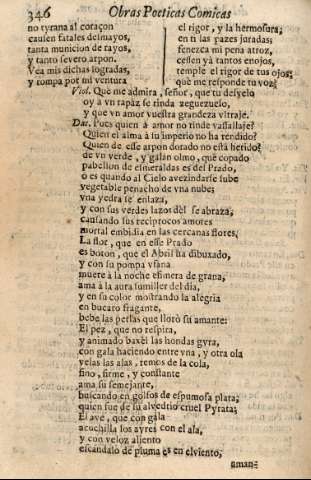 346 Obras Poeticas Comicas
no tyrana al coraçon
causen fatales desmayos,
tanta municion de rayos,
y tanto severo arpon.
Vea mis dichas logradas,
y rompa por mi ventura
el rigor, y la hermosura;
en tâ las pazes juradas;
fenezca mi pena atroz,
cessen yà tantos enojos,
temple el rigor de tus ojos;
què me responde tu voz?
Viol. Què me admira, señor, que tu desvelo
oy à vn rapàz se rinda zeguezuelo,
y que vn amor vuestra grandeza vltraje.
Dar. Pues quien à amor no rinde vassallaje?
Quien el alma à su imperio no ha rendido?
Quien de esse arpon dorado no està herido?
de vn verde, y galàn olmo, què copado
pabellon de esmeraldas es del Prado,
o es quando al Cielo avezindarse sube
vegetable penacho de vna nube;
vna yedra se enlaza,
y con sus verdes lazos dèl se abraza,
causando sus reciprocos amores
mortal embidia en las cercanas flores,
La flor, que en esse Prado
es boton, que el Abril ha dibuxado,
y con su pompa vfana
muere à la noche efimera de grana,
ama à la aura sumiller del dia,
y en su color mostrando la alegria
en bucaro fragante,
bebe las perlas que llorò su amante:
El pez, que no respira,
y animado baxèl las hondas gyra,
con gala haciendo entre vna, y otra ola
velas las alas, remos de la cola,
fino, firme, y constante
ama su semejante,
buscando en golfos de espumosa plata;
quien fue de su alvedrio cruel Pyrata;
El ave, que con gala
acuchilla los ayres con el ala,
y con veloz aliento
escandalo de pluma es en el viento,
aman-